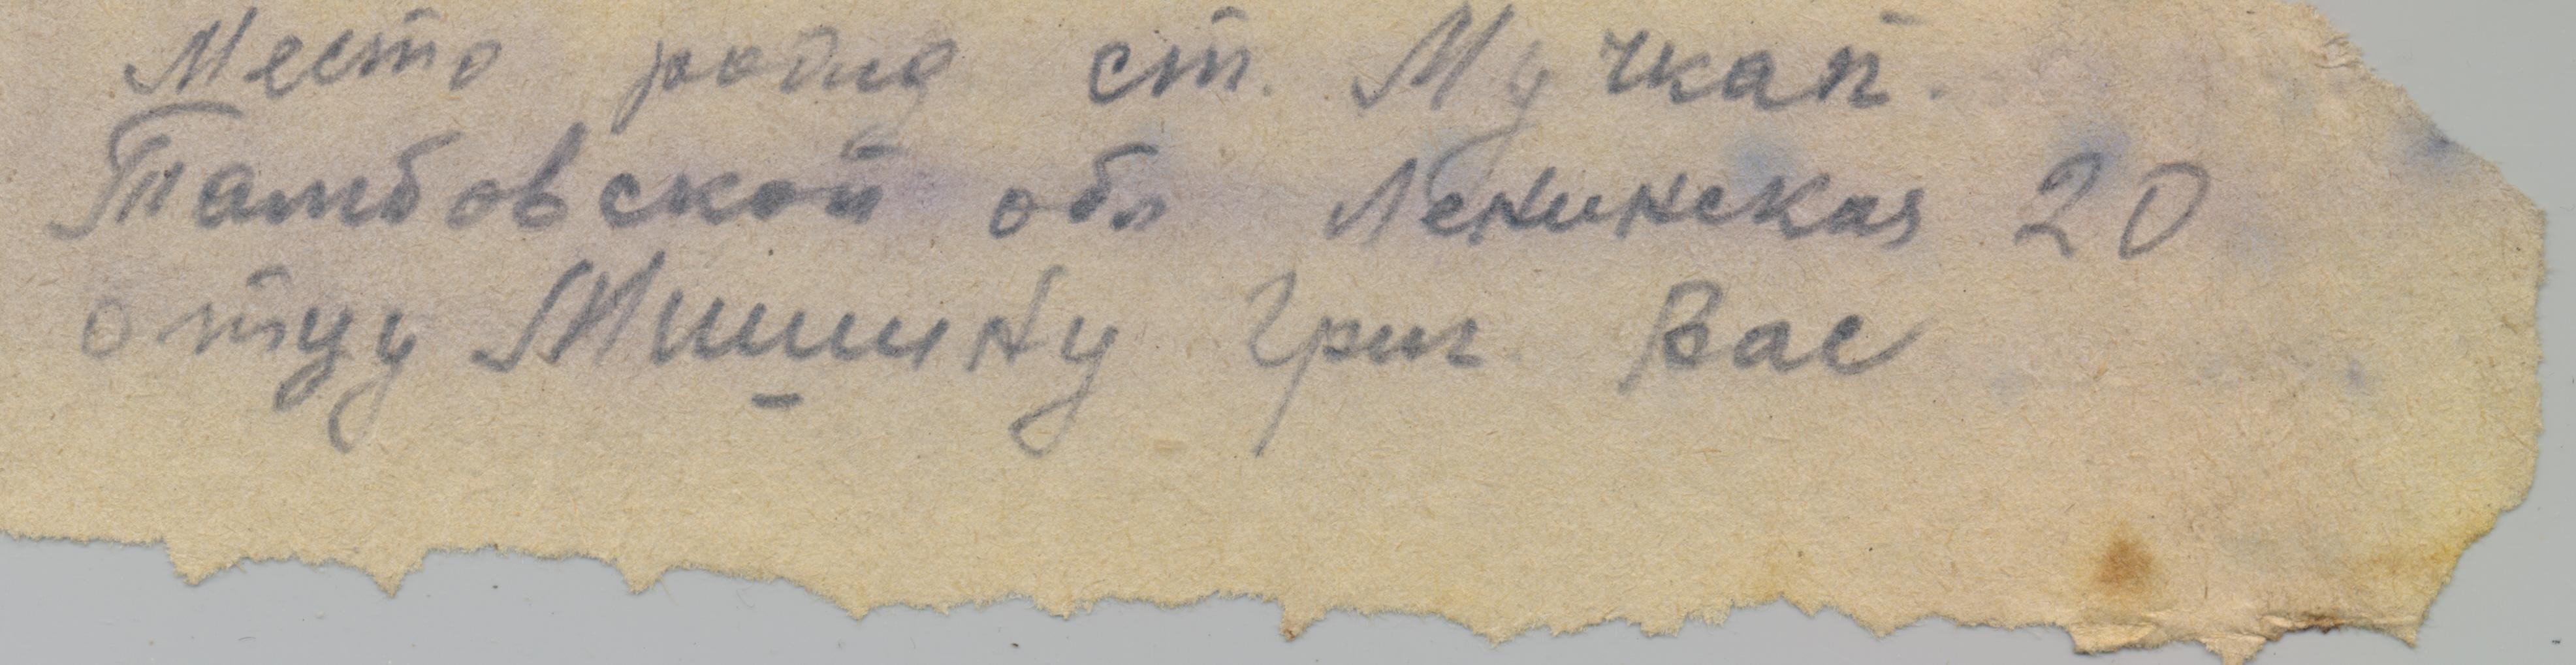 Место родид ст. Мучкап.
Тамбовской обл Ленинская 20
отцу Мишину Григ. Вас